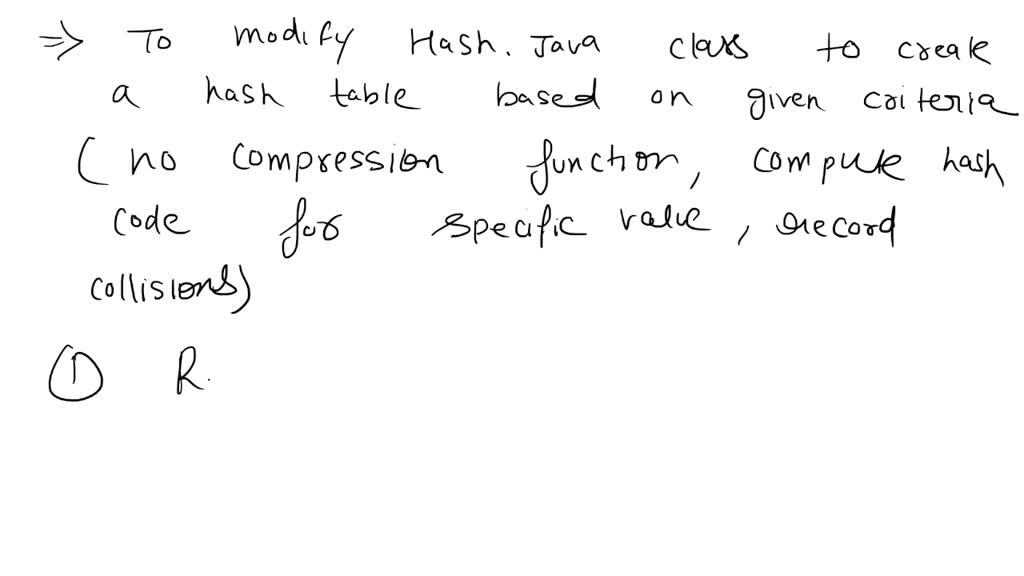 => To modify Hash. Java class to create
a hash table based on given criteria
( no compression function, compute hash
code for specific value, record
collisions)
① R.